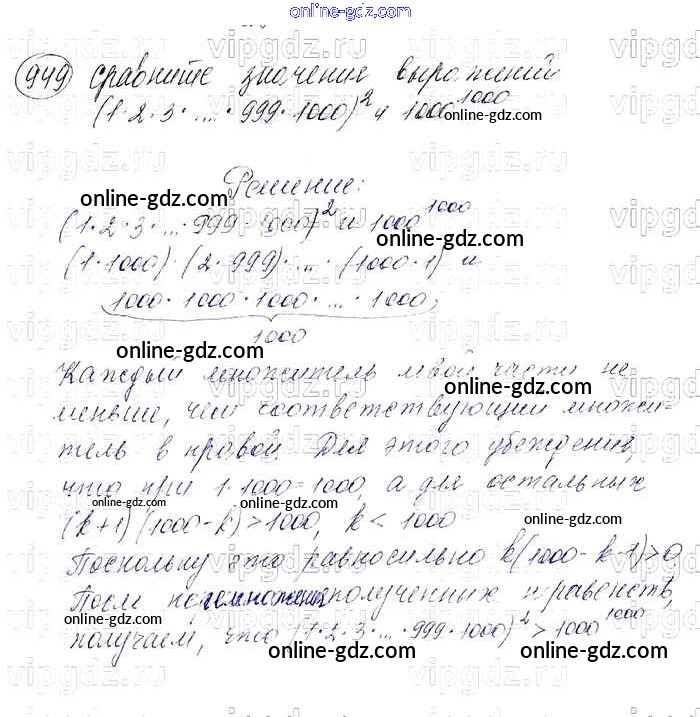 online-gdz.com
949 Сравните значения выражений
(1·2·3·...·999·1000)² и 1000¹⁰⁰⁰
online-gdz.com
Решение:
online-gdz.com
(1·2·3·...·999·1000)² и 1000¹⁰⁰⁰
online-gdz.com
(1·1000)·(2·999)·...·(1000·1) и
1000·1000·1000·...·1000,
online-gdz.com
1000
online-gdz.com
Каждый множитель левой части не
online-gdz.com
меньше, чем соответствующий множи-
тель в правой. Для этого убеждения,
что при 1·1000=1000, а для остальных
online-gdz.com
online-gdz.com
(k+1)(1000-k)>1000, k<1000
online-gdz.com
Поскольку это равносильно k(1000-k-1)>0
online-gdz.com
Посл полученных неравенств,
online-gdz.com
получаем, что (1·2·3·...·999·1000)²>1000¹⁰⁰⁰
online-gdz.com
online-gdz.com